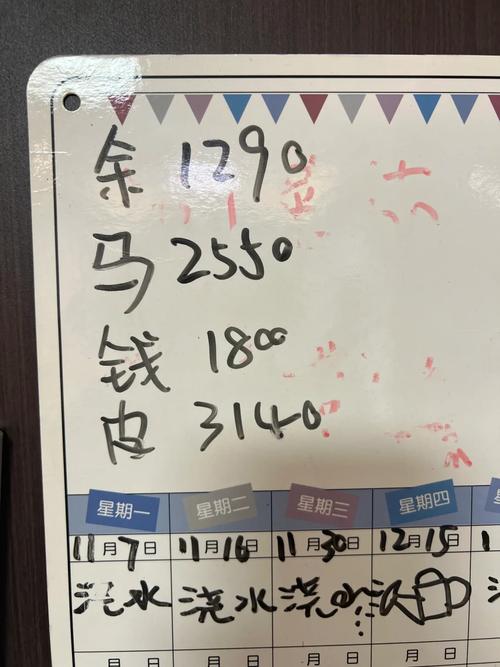 余 1290
马 2550
钱 1800
皮 3140
星期一 星期二 星期三 星期四
11月7日 11月16日 11月30日 12月15日
浇水 浇水 浇水
月 日 月 日 月 日 月 日